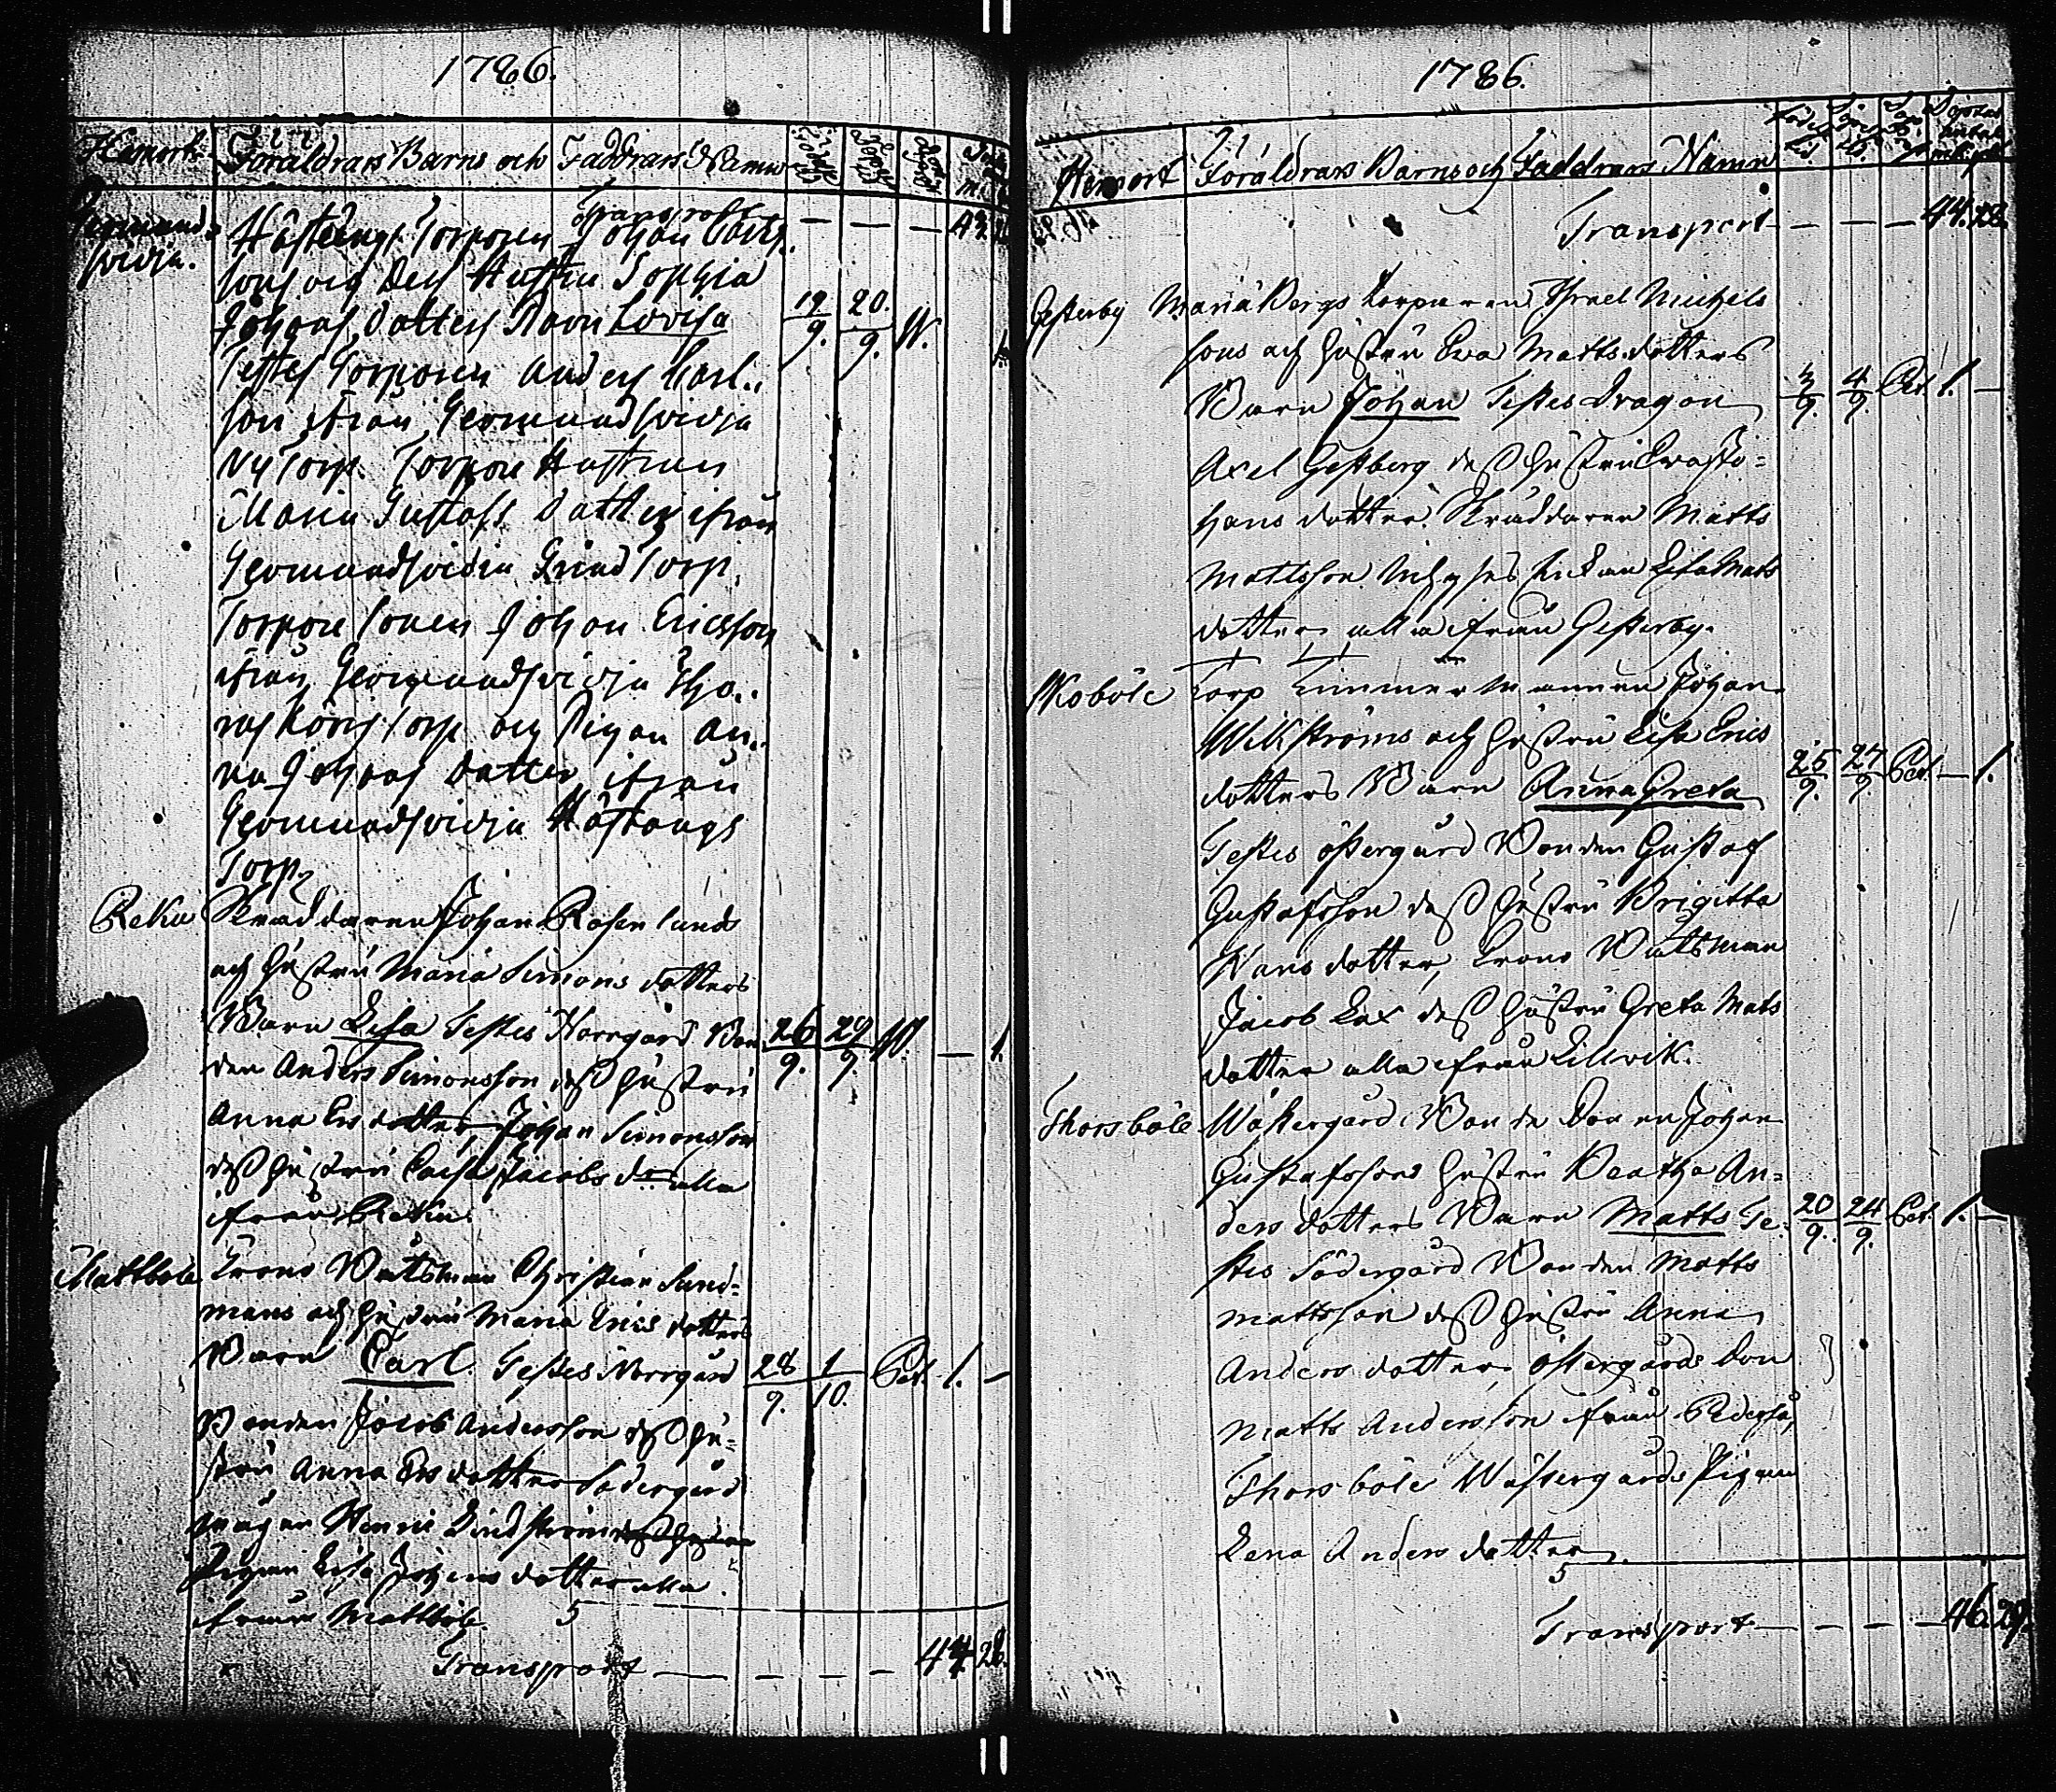 1786.
Hemort. Föräldrars Barns och Faddrars Namn
Transport — — — 43.
Germund-
svidja.
Hästängs Torparen Johan Carls
sons och Des Hustru Sophia
Johans Dotters Barn Lovisa 19/9. 20/9. W.
Testes Torparen Anders Carl-
son ifrån Germundsvidja
Ny Torp. Torpare Hustrun
Maria Gustafs Dotter ifrån
Germundsvidia Grind Torp.
Torpare Sonen Johan Ericsson
ifrån Germundsvidja
Torp och Pigan An-
na Johans Dotter ifrån
Germundsvidja Hästängs
Torp
Reku Skräddaren Johan Rosenlunds
och Hustru Maria Simons dotters
Barn Lisa Testes Norrgård Bon 26/9. 29/9. W. — 1.
den Anders Simonsson dess Hustru
Anna Ers dotter, Johan Simonsson
dess Hustru Caisa Jacobs dr alla
ifrån Reku.
Mattböle Krono Båtsman Christian Sund-
mans och Hustru Maria Erics dotters
Barn Carl. Testes Norrgård 28/9. 1/10. Pet. 1. —
Bonden Jacob Andersson dess Hu-
stru Anna Ers dotter Södergård
mågen Henric Lindström dess Hustru
Pigan Lisa Johans dotter alla
ifrån Mattböle. 5
Transport — — — — 44. 28.
1786.
Hemort Föräldrars Barns och Faddrars Namn
Transport — — — 44. 28.
Gesterby Mariæbergs Torparen Israel Michels
sons och Hustru Eva Matts dotters
Barn Johan Testes Dragon 3/9. 4/9. Pet. 1. —
Axel Gestberg dess Hustru Eva Jo-
hans dotter. Skräddaren Matts
Mattsson Pickan Lisa Mats
dotter alla ifrån Gesterby.
Wkoböle Torp Timmermannen Johan
Wikströms och Hustru Lisa Erics
dotters Barn Anna Greta 25/9. 27/9. Pet. — 1.
Testes östergård Bonden Gustaf
Gustafsson dess Hustru Brigitta
Hans dotter, Krono Båtsman
Jacob Lax dess Hustru Greta Mats
dotter alla ifrån Lillvik.
Thorsböle Wästergård Bonde Sonen Johan
Gustafssons Hustru Beatha An-
ders dotters Barn Matts Te- 20/9. 24/9. Pet. 1. —
stes Södergård Bonden Matts
Mattsson dess Hustru Anna
Anders dotter, östergårds Son
Matts Andersson ifrån Pederså,
Thorsböle Wästergårds Pigan
Lena Anders dotter
5
Transport — — — — 46. 29.